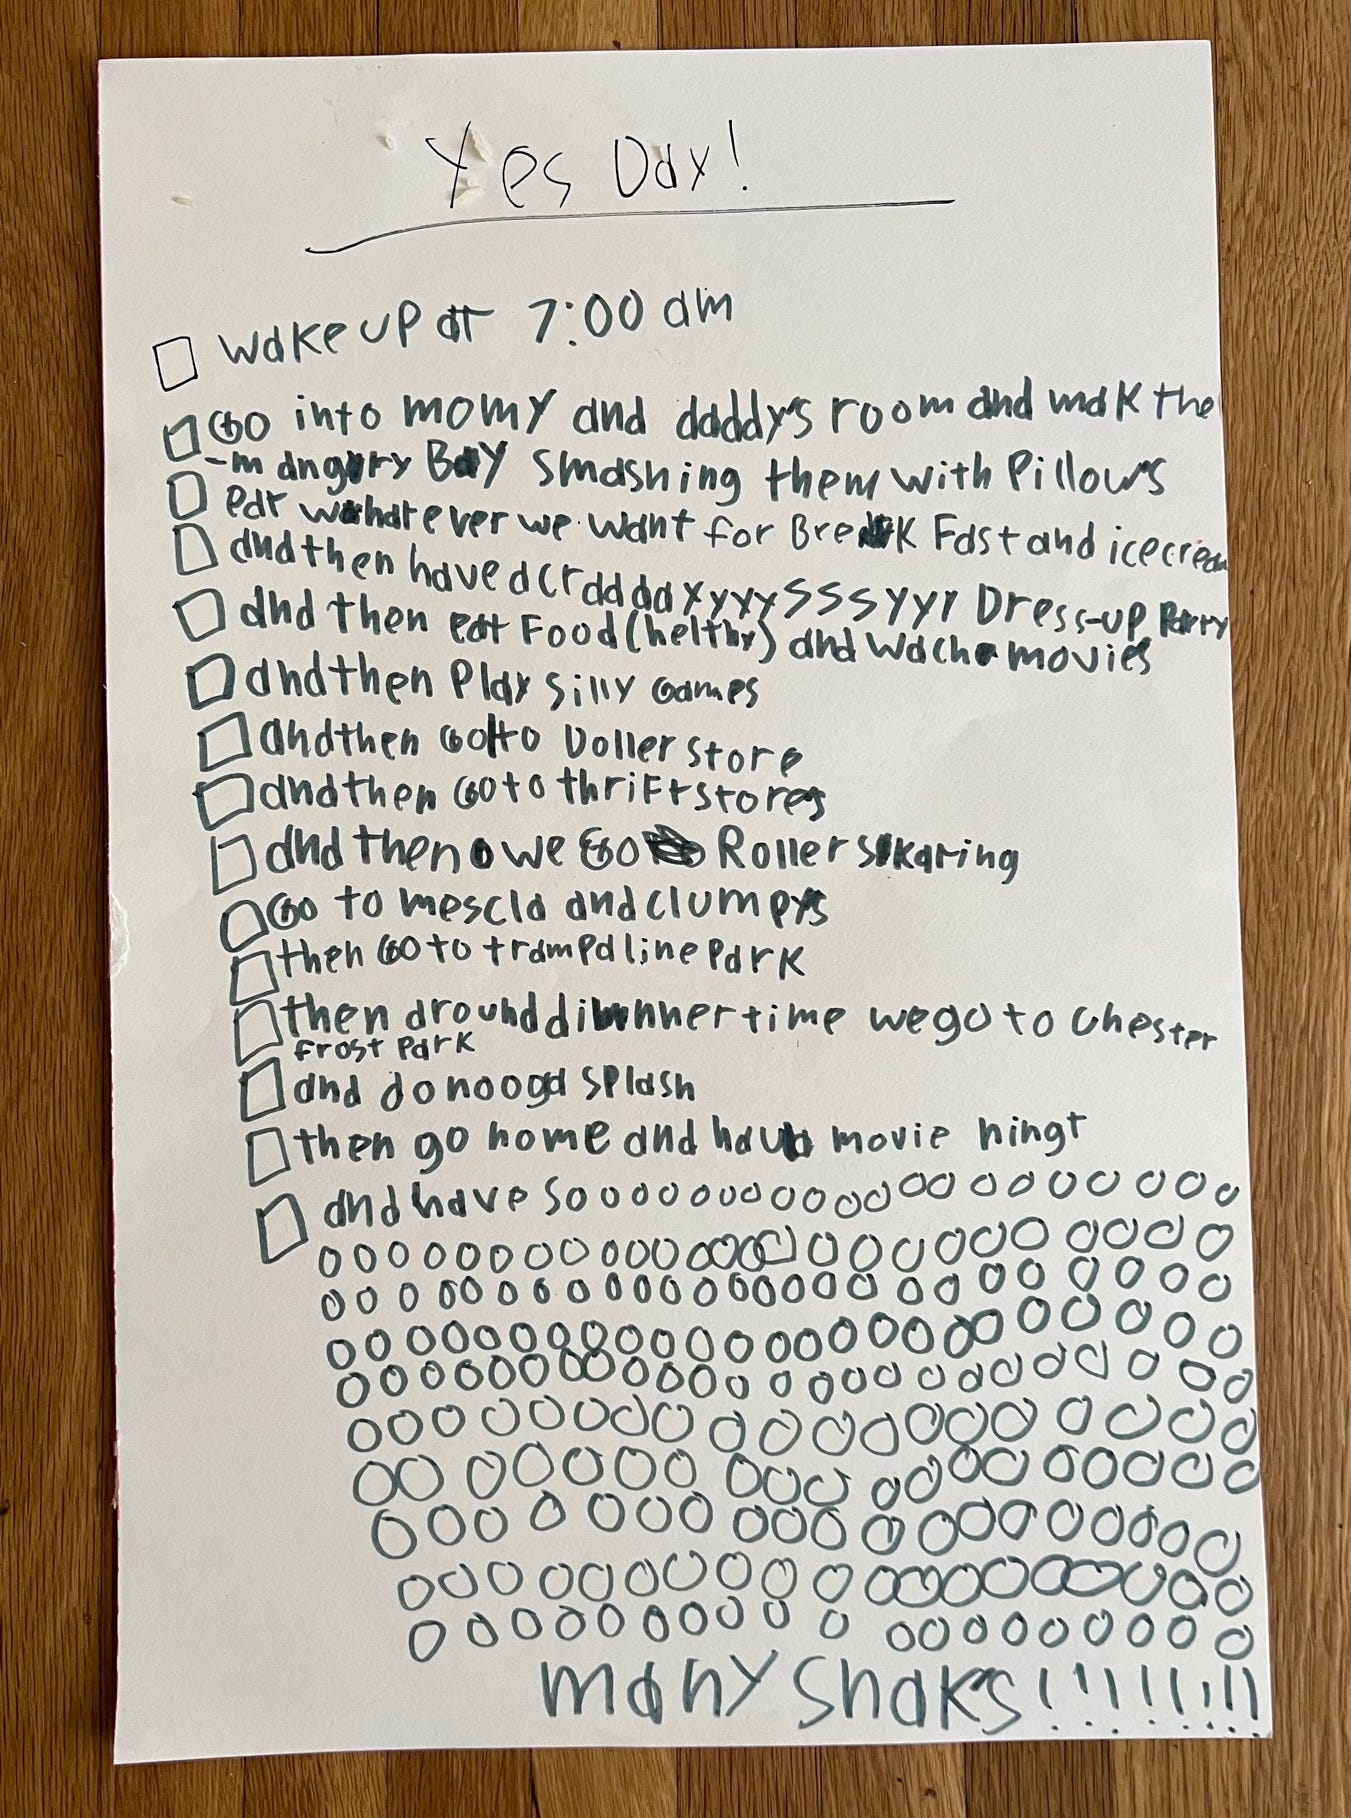 Yes Day!
wake up at 7:00 am
Go into momy and daddy's room and mak the
-m angury Bay smashing them with Pillows
eat whatever we want for Break Fast and icecream
and then have a craaaaaxyyyysssyyy Dress-up Party
and then eat Food (helthy) and wach movies
and then Play silly Games
and then Go to Doller store
and then Go to thrift stores
and then we Go Roller skating
Go to mescla and clumpys
then Go to trampaline Park
then around dinnertime we go to Chester
Frost Park
and do nooga splash
then go home and have movie ningt
and have Sooooooooooooooooooo
oooooooooooooooooooooooo
ooooooooooooooooooooooooo
oooooooooooooooooooooooo
oooooooooooooooooooooooo
ooooooooooooooooooooo
oooooooooooooooooooo
ooooooooooooooooooooo
oooooooooooooooooooo
ooooooooooooooooooo
many snaks!!!!!!!!!